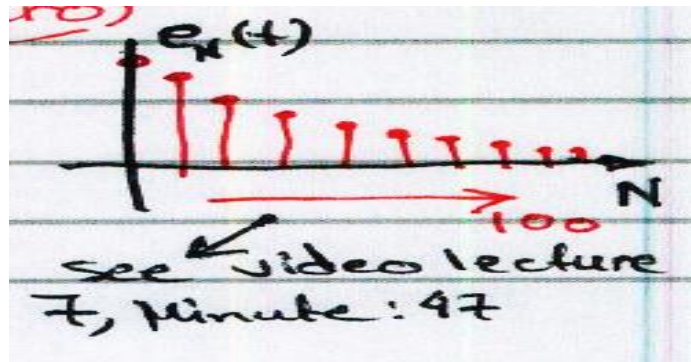 e_N(t)
N
100
see video lecture
7, Minute: 47